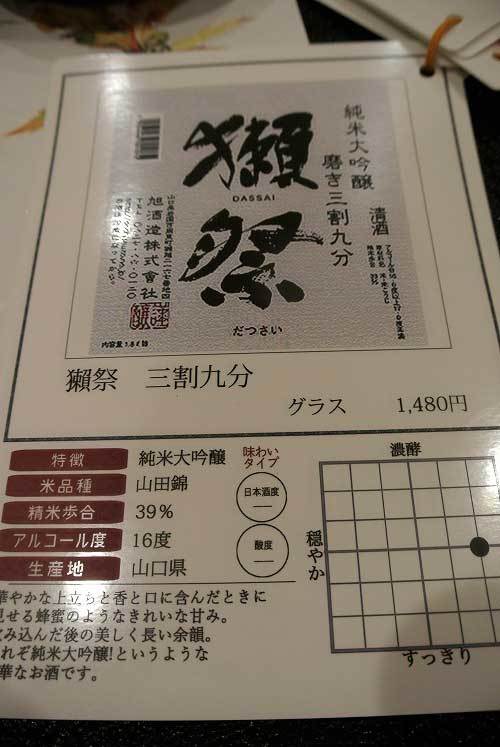 純米大吟醸
磨き三割九分
獺祭
DASSAI
清酒
旭酒造株式會社
だっさい
内容量1.8ℓ詰
獺祭 三割九分
グラス 1,480円
特徴 純米大吟醸
米品種 山田錦
精米歩合 39%
アルコール度 16度
生産地 山口県
味わい
タイプ
日本酒度
―
酸度
―
濃醇
穏やか
すっきり
華やかな上立ちと香と口に含んだときに
見せる蜂蜜のようなきれいな甘み。
飲み込んだ後の美しく長い余韻。
れぞ純米大吟醸!というような
華なお酒です。